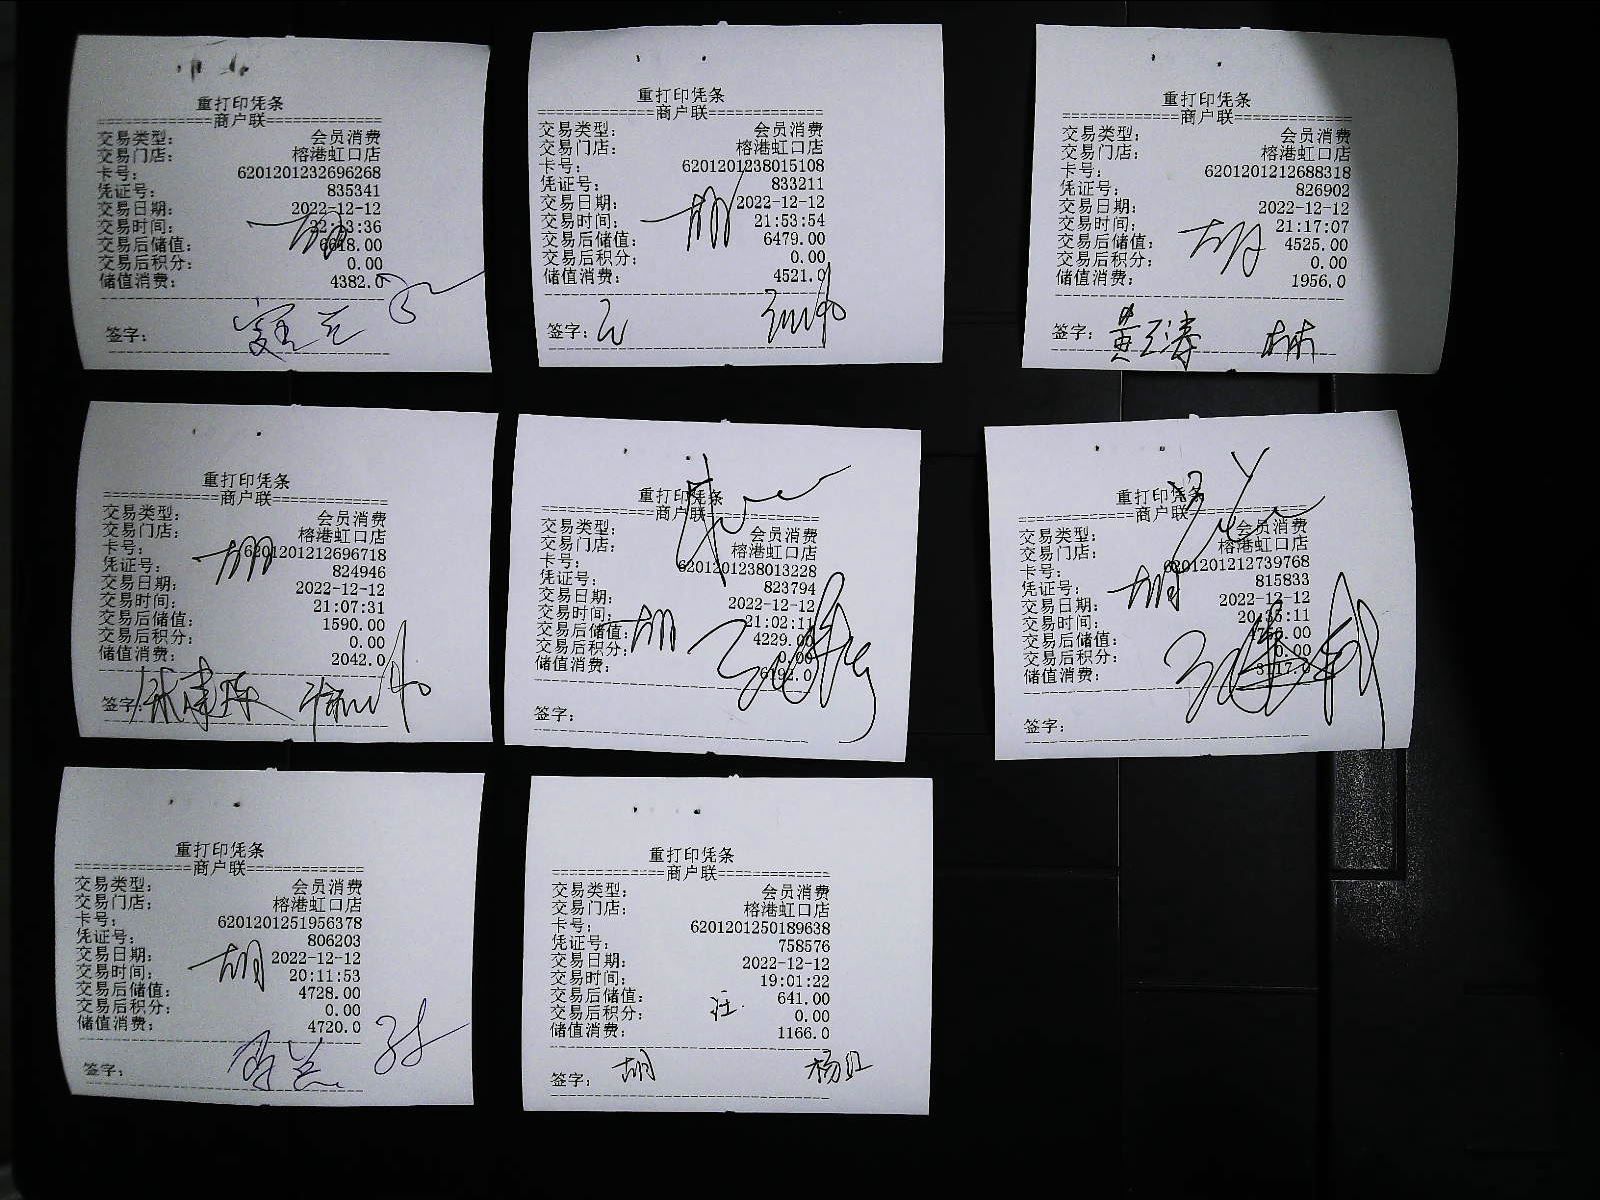 重打印凭条
============商户联============
交易类型: 会员消费
交易门店: 榕港虹口店
卡号: 6201201232696268
凭证号: 835341
交易日期: 2022-12-12
交易时间:
交易后储值:
交易后积分: 0.00
储值消费: 4382.0
签字:
重打印凭条
============商户联============
交易类型: 会员消费
交易门店: 榕港虹口店
卡号: 6201201238015108
凭证号: 833211
交易日期: 2022-12-12
交易时间: 21:53:54
交易后储值: 6479.00
交易后积分: 0.00
储值消费: 4521.0
签字:
重打印凭条
============商户联============
交易类型: 会员消费
交易门店: 榕港虹口店
卡号: 6201201212688318
凭证号: 826902
交易日期: 2022-12-12
交易时间: 21:17:07
胡
交易后储值: 4525.00
交易后积分: 0.00
储值消费: 1956.0
签字: 黄玉涛 林
重打印凭条
============商户联============
交易类型: 会员消费
交易门店: 榕港虹口店
卡号: 6201201212696718
凭证号: 824946
交易日期: 2022-12-12
交易时间: 21:07:31
交易后储值: 1590.00
交易后积分: 0.00
储值消费: 2042.0
签字:
重打印凭条
============商户联============
交易类型: 会员消费
交易门店: 榕港虹口店
卡号: 6201201238013228
凭证号: 823794
交易日期: 2022-12-12
交易时间: 21:02:11
胡
交易后储值: 4229.00
交易后积分: 0.00
储值消费:
签字:
重打印凭条
============商户联============
交易类型: 会员消费
交易门店: 榕港虹口店
卡号: 6201201212739768
凭证号: 815833
胡
交易日期: 2022-12-12
交易时间:
交易后储值:
交易后积分: 0.00
储值消费:
签字:
重打印凭条
============商户联============
交易类型: 会员消费
交易门店: 榕港虹口店
卡号: 6201201251956378
凭证号: 806203
交易日期: 2022-12-12
胡
交易时间: 20:11:53
交易后储值: 4728.00
交易后积分: 0.00
储值消费: 4720.0
签字:
重打印凭条
============商户联============
交易类型: 会员消费
交易门店: 榕港虹口店
卡号: 6201201250189638
凭证号: 758576
交易日期: 2022-12-12
交易时间: 19:01:22
交易后储值: 641.00
汪
交易后积分: 0.00
储值消费: 1166.0
签字: 胡